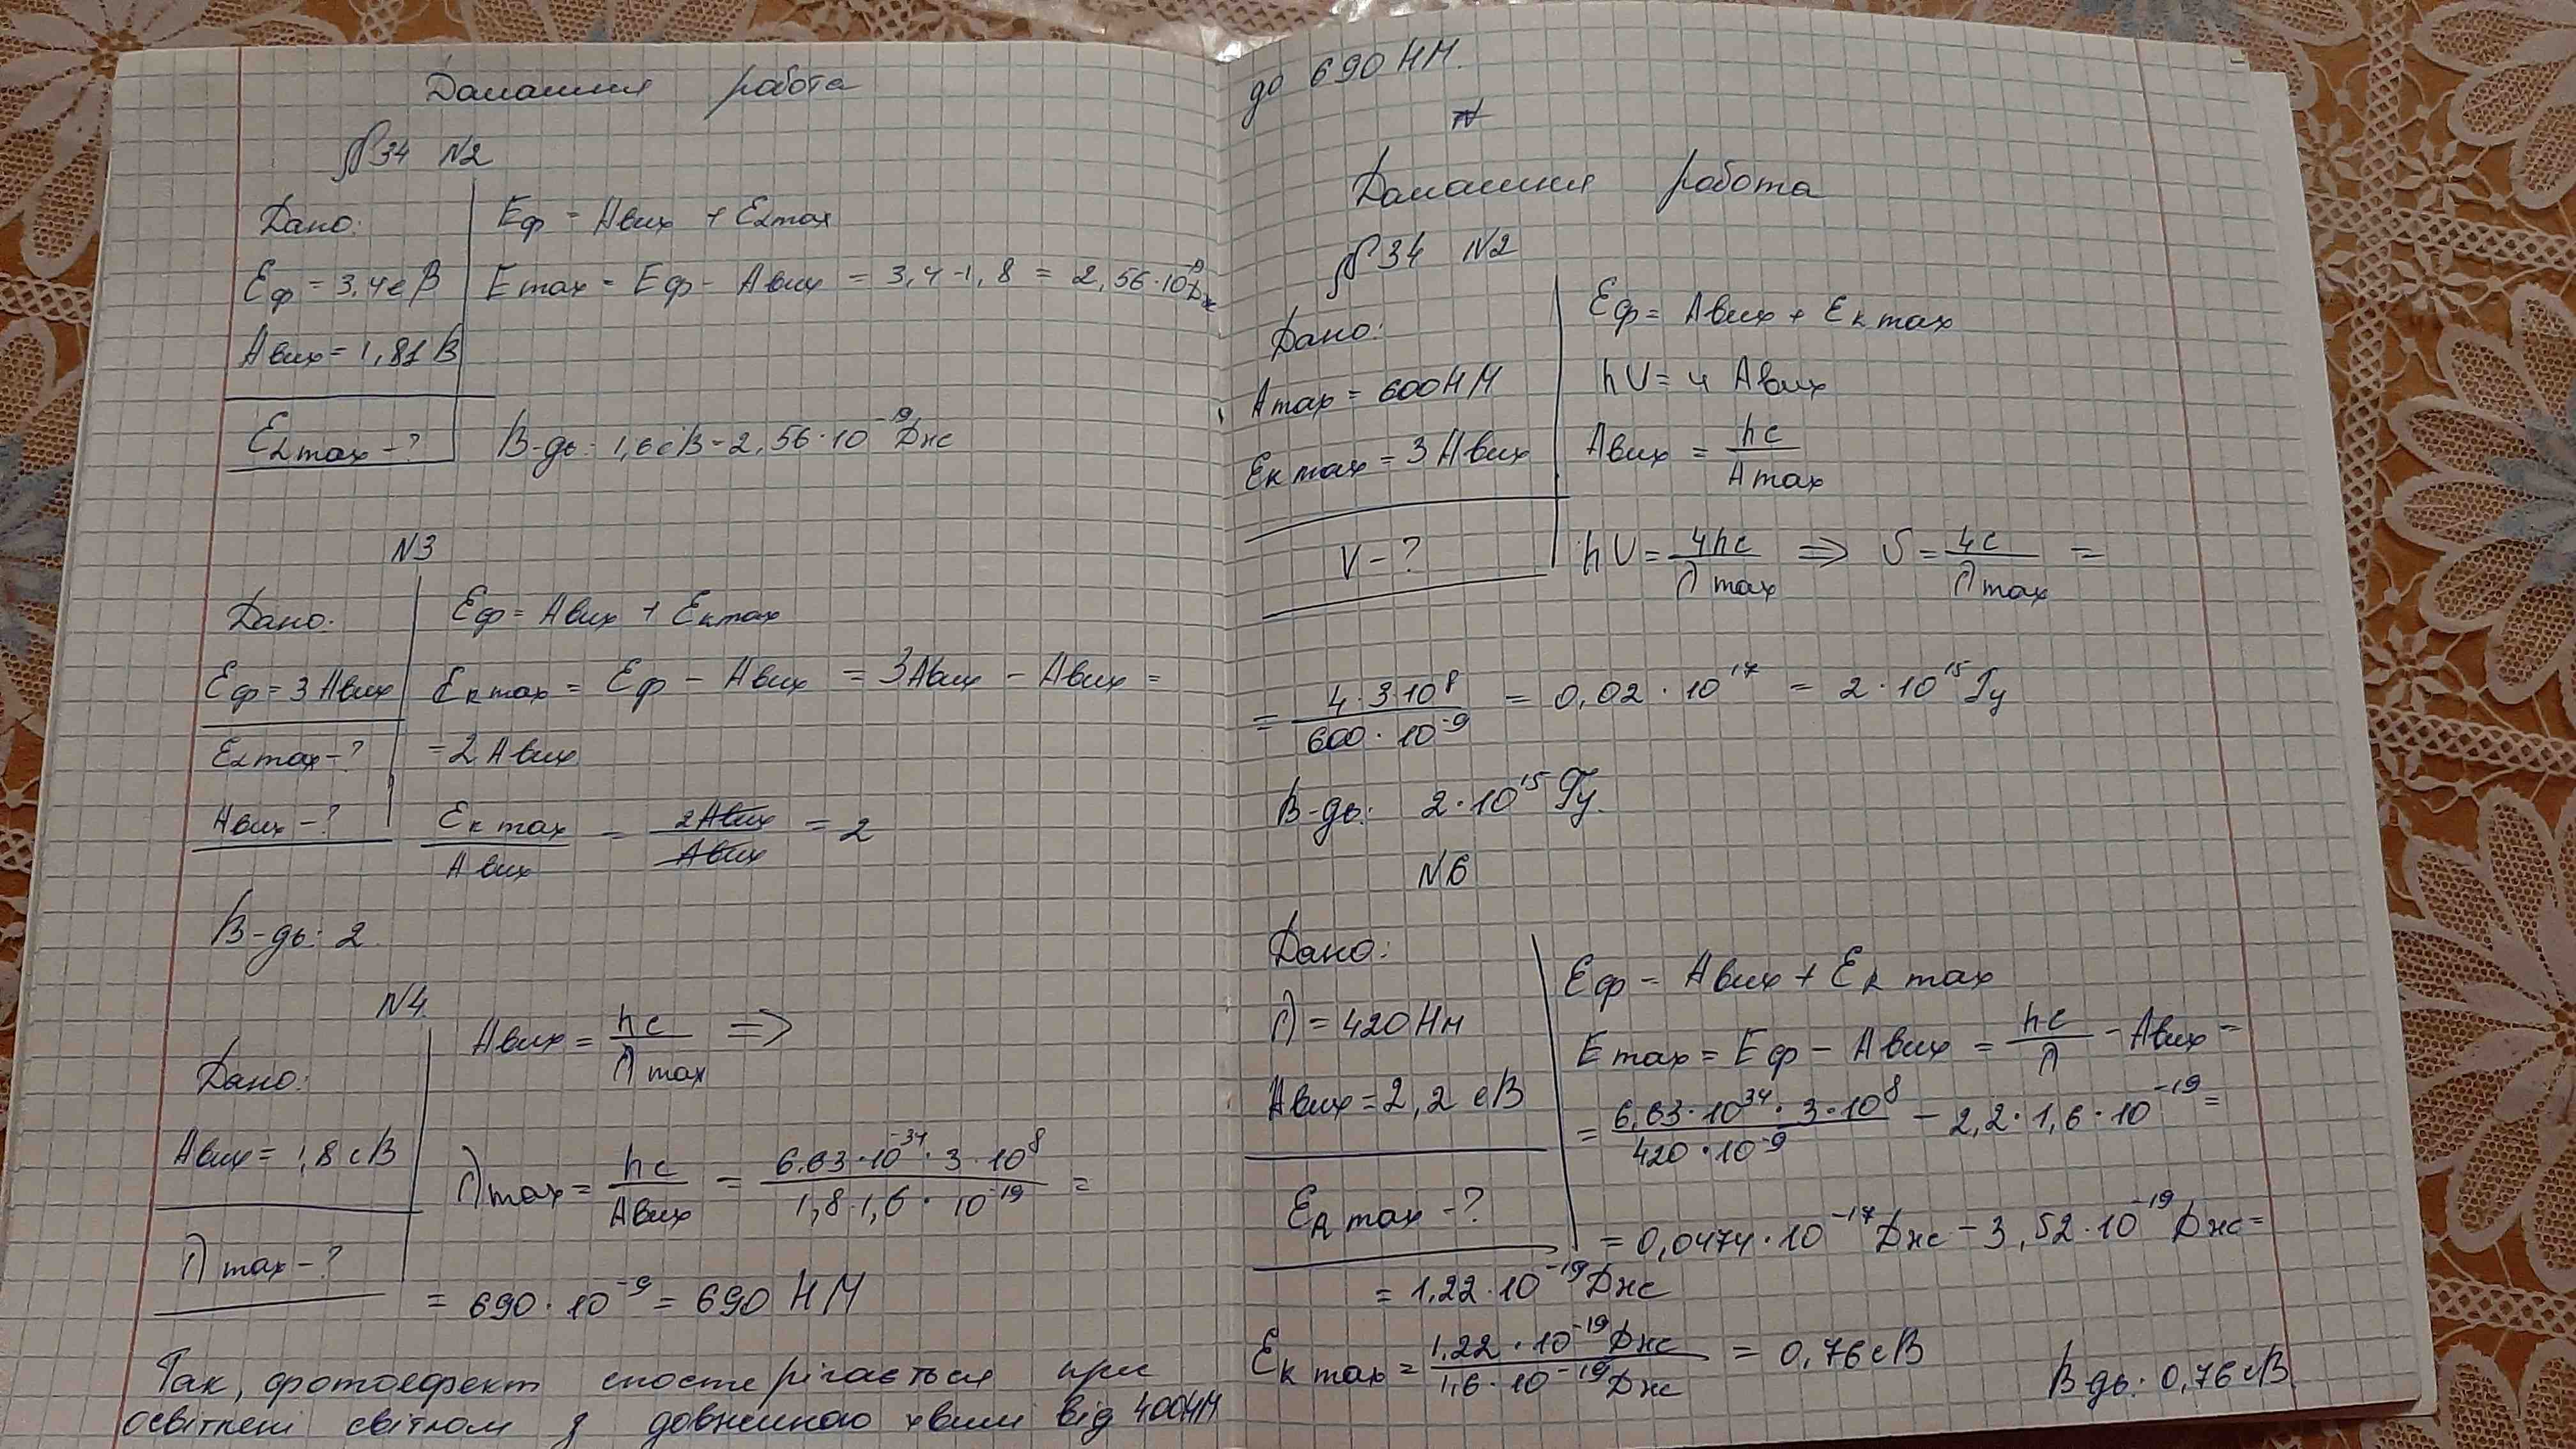 Домашня робота
§34 №2
Дано:
Eф = 3,4еВ
Aвих = 1,8еВ
Eкmax - ?
Eф = Aвих + Eкmax
Emax = Eф - Aвих = 3,4-1,8 = 2,56·10⁻¹⁹Дж
В-дь: 1,6еВ=2,56·10⁻¹⁹Дж
№3
Дано:
Eф = 3Aвих
Eкmax - ?
Aвих - ?
Eф = Aвих + Eкmax
Eкmax = Eф - Aвих = 3Aвих - Aвих =
= 2Aвих
Eкmax/Aвих = 2Aвих/Aвих = 2
В-дь: 2
№4
Дано:
Aвих = 1,8еВ
λmax - ?
Aвих = hc/λmax =>
λmax = hc/Aвих = 6.63·10⁻³⁴·3·10⁸/1,8·1,6·10⁻¹⁹ =
= 690·10⁻⁹ = 690 НМ
Так, фотоефект спостерігається при
освітлені світлом з довжиною хвилі від 400НМ
до 690 НМ.
Домашня робота
§34 №2
Дано:
Amax = 600НМ
Eкmax = 3Aвих
V - ?
Eф = Aвих + Eкmax
hV = 4 Aвих
Aвих = hc/Amax
hV = 4hc/λmax => V = 4c/λmax =
= 4·3·10⁸/600·10⁻⁹ = 0,02·10¹⁷ = 2·10¹⁵Гц
В-дь: 2·10¹⁵Гц.
№6
Дано:
λ = 420Нм
Aвих = 2,2 еВ
Eкmax - ?
Eф = Aвих + Eкmax
Emax = Eф - Aвих = hc/λ - Aвих =
= 6,63·10³⁴·3·10⁸/420·10⁻⁹ - 2,2·1,6·10⁻¹⁹ =
= 0,0474·10⁻¹⁷Дж - 3,52·10⁻¹⁹Дж =
= 1.22·10⁻¹⁹Дж
Eкmax = 1.22·10⁻¹⁹Дж/1,6·10⁻¹⁹Дж = 0,76еВ
В-дь: 0,76еВ.